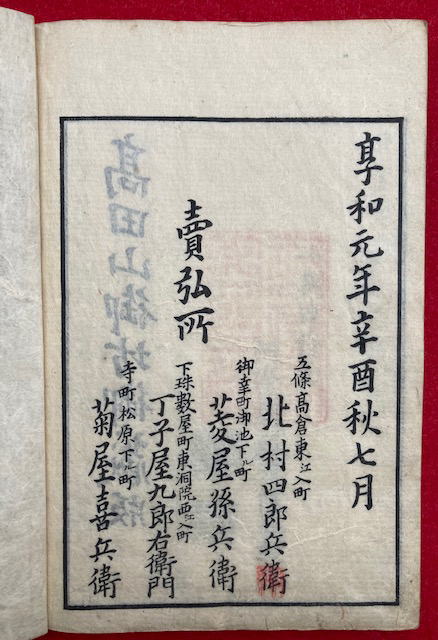 享和元年辛酉秋七月
賣弘所
五條髙倉東江入町
北村四郎兵衛
御幸町御池下ル町
菱屋孫兵衛
下珠數屋町東洞院西江入町
丁子屋九郎右衛門
寺町松原下ル町
菊屋喜兵衛